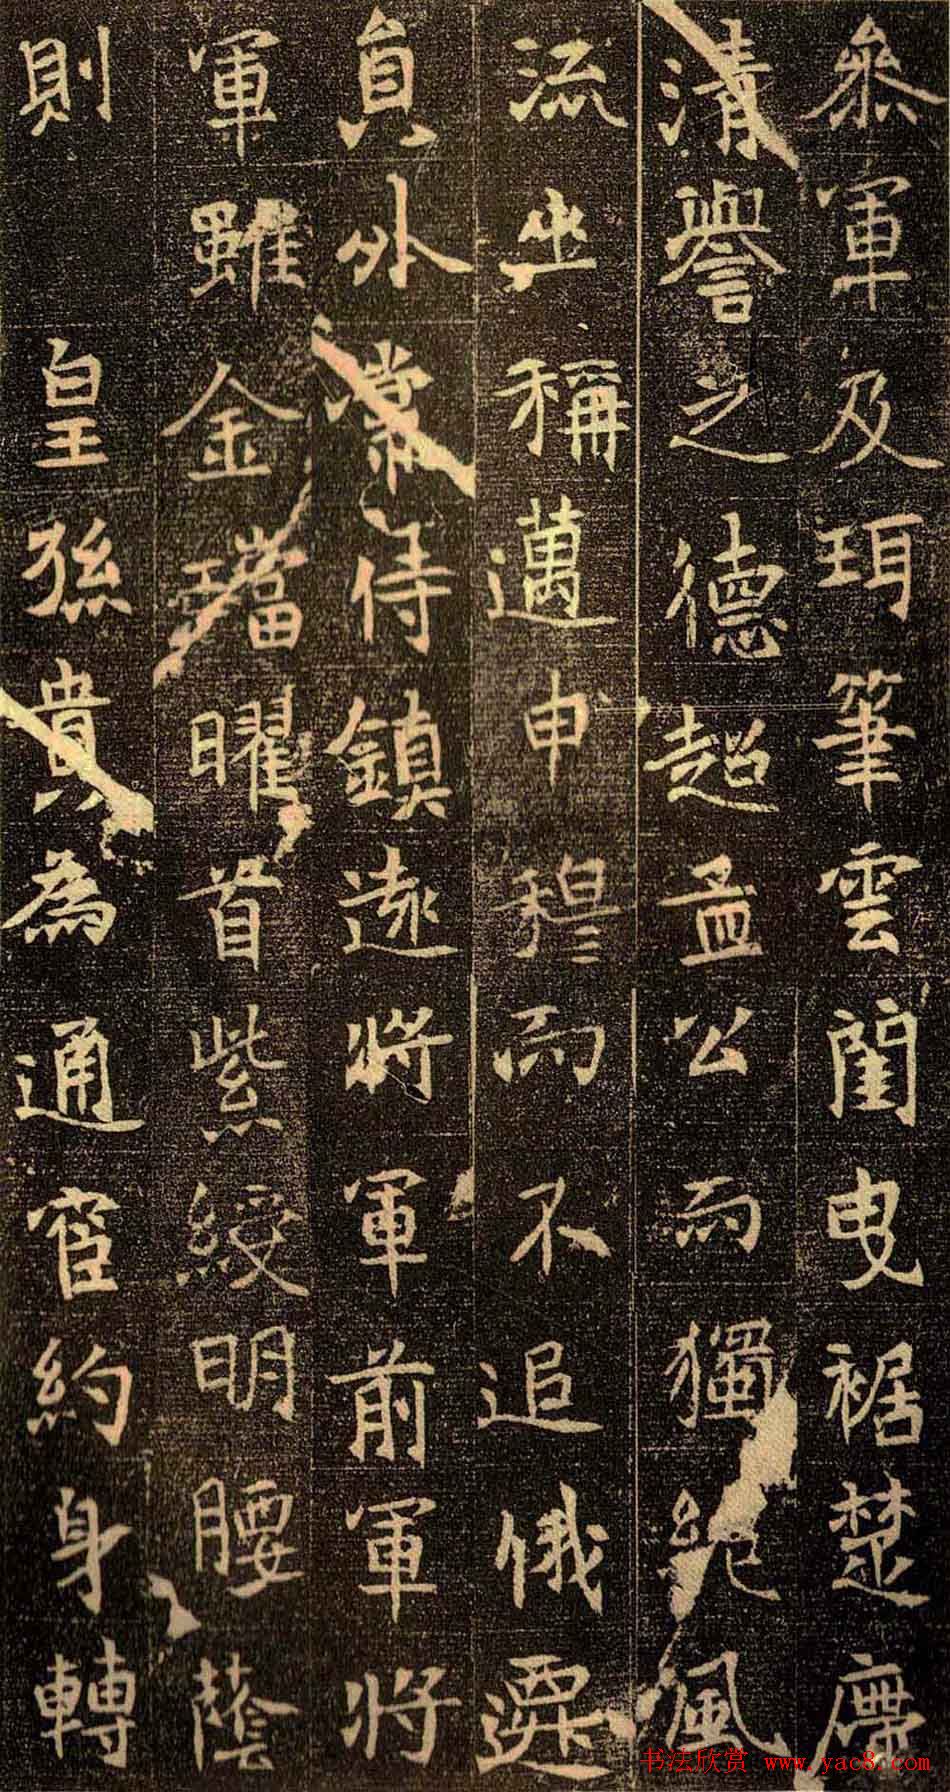 叅軍及珥筆雲閨曳裾楚席
清譽之德超孟公而獨絶風
流㞢稱邁申穆而不追俄遷
員外常侍鎮遠將軍前軍將
軍雖金璫曜首紫綬明腰蔭
則 皇孫貴為通官約身轉
书法欣赏 www.yac8.com